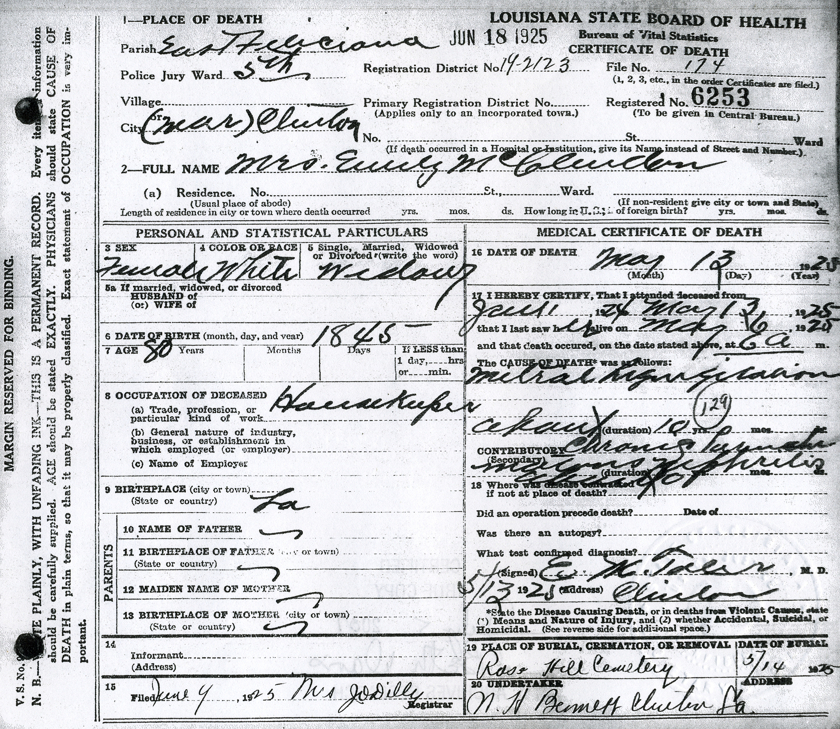 LOUISIANA STATE BOARD OF HEALTH
Bureau of Vital Statistics
CERTIFICATE OF DEATH
JUN 18 1925
1—PLACE OF DEATH
Parish East Feliciana
Police Jury Ward 5th
Registration District No. 19-2123
File No. 174
(1, 2, 3, etc., in the order Certificates are filed.)
Village
or
City (near) Clinton
Primary Registration District No.
(Applies only to an incorporated town.)
Registered No. 6253
(To be given in Central Bureau.)
No. St. Ward
(If death occurred in a Hospital or Institution, give its Name instead of Street and Number.)
2—FULL NAME Mrs. Emily McClendon
(a) Residence. No. St., Ward.
(Usual place of abode) (If non-resident give city or town and State)
Length of residence in city or town where death occurred yrs. mos. ds. How long in U.S. of foreign birth? yrs. mos. ds.
PERSONAL AND STATISTICAL PARTICULARS
3 SEX
Female
4 COLOR OR RACE
White
5 Single, Married, Widowed
or Divorced (write the word)
Widow
5a If married, widowed, or divorced
HUSBAND of
(or) WIFE of
6 DATE OF BIRTH (month, day, and year) 1845
7 AGE 80 Years Months Days
If LESS than
1 day,....hrs
or....min.
8 OCCUPATION OF DECEASED
(a) Trade, profession, or
particular kind of work Housekeeper
(b) General nature of industry,
business, or establishment in
which employed (or employer)
(c) Name of Employer
9 BIRTHPLACE (city or town)
(State or country) La
PARENTS
10 NAME OF FATHER
11 BIRTHPLACE OF FATHER (city or town)
(State or country)
12 MAIDEN NAME OF MOTHER
13 BIRTHPLACE OF MOTHER (city or town)
(State or country)
14
Informant
(Address)
15
Filed June 9, 1925 Mrs
Registrar
MEDICAL CERTIFICATE OF DEATH
16 DATE OF DEATH May 13 1925
(Month) (Day) (Year)
17 I HEREBY CERTIFY, That I attended deceased from
1924 May 13, 1925
that I last saw her alive on May 6 1925
and that death occurred, on the date stated above, at 6a m.
The CAUSE OF DEATH* was as follows:
Mitral Regurgitation
129
about (duration) 10 yrs. mos.
CONTRIBUTORY Chronic
(Secondary)
Nephritis
(duration)
18 Where was disease contracted
if not at place of death?
Did an operation precede death? Date of
Was there an autopsy?
What test confirmed diagnosis?
(Signed) E. M. Toler M. D.
5/13 1925 (Address) Clinton
*State the Disease Causing Death, or in deaths from Violent Causes, state
(1) Means and Nature of Injury, and (2) whether Accidental, Suicidal, or
Homicidal. (See reverse side for additional space.)
19 PLACE OF BURIAL, CREMATION, OR REMOVAL
Rose Hill Cemetery
DATE OF BURIAL
5/14 1925
20 UNDERTAKER
N. H Bennett
ADDRESS
Clinton La.
MARGIN RESERVED FOR BINDING.
V. S. No.
N. B.—WRITE PLAINLY, WITH UNFADING INK—THIS IS A PERMANENT RECORD. Every item of information
should be carefully supplied. AGE should be stated EXACTLY. PHYSICIANS should state CAUSE OF
DEATH in plain terms, so that it may be properly classified. Exact statement of OCCUPATION is very im-
portant.